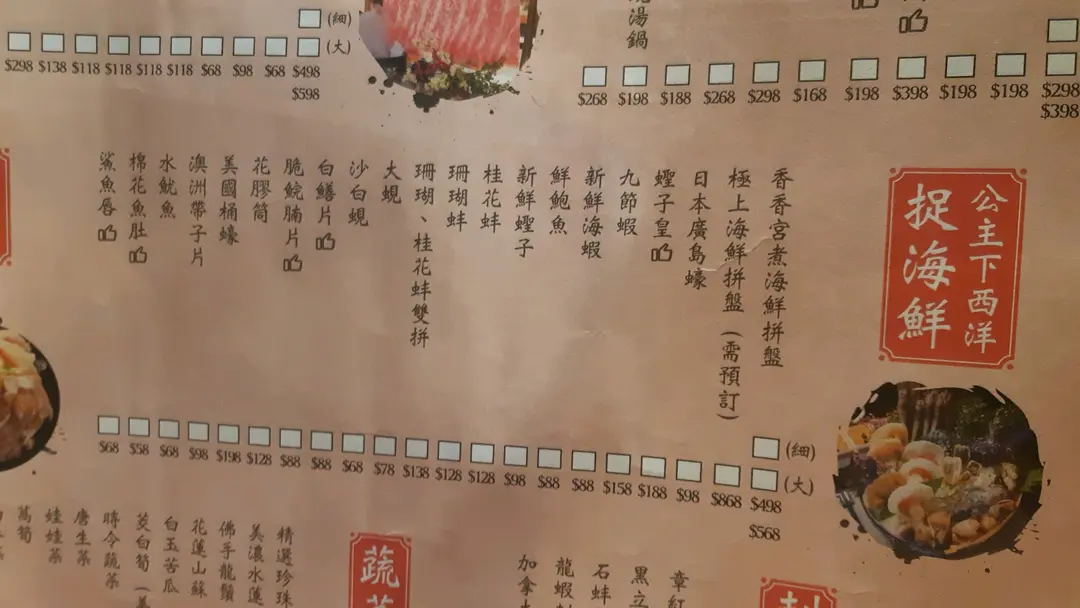 湯鍋
(細)
(大)
$298 $138 $118 $118 $118 $118 $68 $98 $68 $498
$598
$268 $198 $188 $268 $298 $168 $198 $398 $198 $198 $298
$398
公主下西洋
捉海鮮
香香宮煮海鮮拼盤
極上海鮮拼盤(需預訂)
日本廣島蠔
蟶子皇
九節蝦
新鮮海蝦
鮮鮑魚
新鮮蟶子
桂花蚌
珊瑚蚌
珊瑚、桂花蚌雙拼
大蜆
沙白蜆
白鱔片
脆鯇腩片
花膠筒
美國桶蠔
澳洲帶子片
水魷魚
棉花魚肚
鯊魚唇
(細)
(大)
$68 $58 $68 $98 $198 $128 $88 $88 $68 $78 $138 $128 $128 $98 $88 $88 $158 $188 $98 $868 $498
$568
章紅
黑立
石蚌
龍蝦
加拿
蔬
精選珍珠
美濃水蓮
佛手龍鬚
花蓮山蘇
白玉苦瓜
茭白筍
時令蔬菜
唐生菜
娃娃菜
萵筍